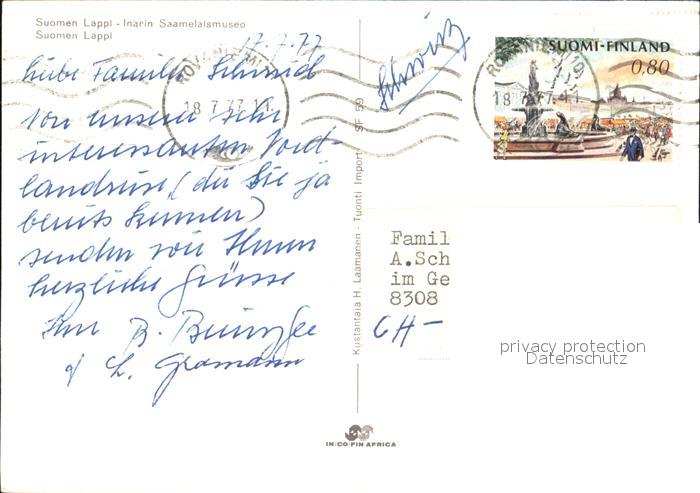 Suomen Lappi - Inarin Saamelaismuseo
Suomen Lappi
17.7.77
Liebe Familie Schmid
Von unserer sehr
interessanten Nord-
landreise, (die Sie ja
bereits kennen)
senden wir Ihnen
herzliche Grüsse
Ihre B.
L. Gramann
Schweiz
ROVANIEMI
18.7.77
ROVANIEMI
18.7.77
SUOMI-FINLAND
0,80
Kustantaja H. Laamanen - Tuonti Import SF 59
Famil
A.Sch
im Ge
8308
CH-
privacy protection
Datenschutz
IN:CO:FIN AFRICA